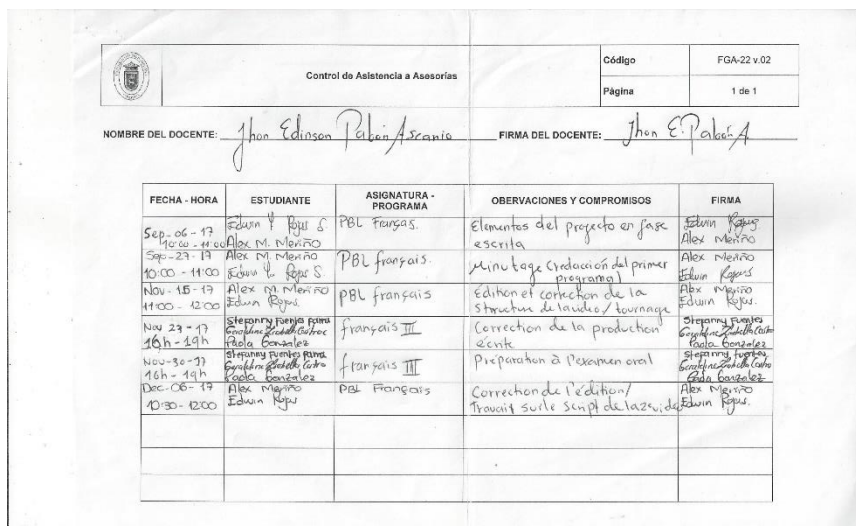 Control de Asistencia a Asesorías
Código
FGA-22 v.02
Página
1 de 1
NOMBRE DEL DOCENTE: Jhon Edinson Pabón Ascanio
FIRMA DEL DOCENTE: Jhon E. Pabón A
FECHA - HORA
ESTUDIANTE
ASIGNATURA -
PROGRAMA
OBERVACIONES Y COMPROMISOS
FIRMA
Sep-06-17
10:00 - 11:00
Edwin Y Rojas S
Alex M. Meriño
PBL Franças.
Elementos del proyecto en fase
escrita
Edwin Rojas
Alex Meriño
Sep-27-17
10:00 - 11:00
Alex M. Meriño
Edwin Y. Rojas S
PBL français.
Minutage (redacción del primer
programa)
Alex Meriño
Edwin Rojas
Nov-15-17
11:00 - 12:00
Alex M. Meriño
Edwin Rojas.
PBL français
Édition et correction de la
structure de la video / tournage
Alex Meriño
Edwin Rojas.
Nov 27-17
16h - 19h
Stefanny Fuentes
Geraldine Castro
Paola Gonzalez
français III
Correction de la production
écrite
Stefanny Fuentes
Geraldine Castro
Paola Gonzalez
Nov-30-17
16h - 19h
Stefanny Fuentes
Geraldine Castro
Paola Gonzalez
français III
Préparation à l'examen oral
Stefanny Fuentes
Geraldine Castro
Paola Gonzalez
Dec-06-17
10:30 - 12:00
Alex Meriño
Edwin Rojas
PBL Français
Correction de l'édition/
Travail sur le script de la 2e video
Alex Meriño
Edwin Rojas.